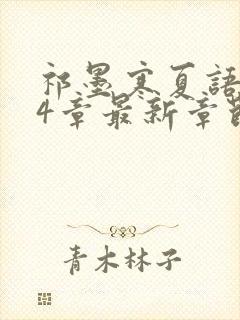 祁墨寒夏語
4章最新章節
青木林子